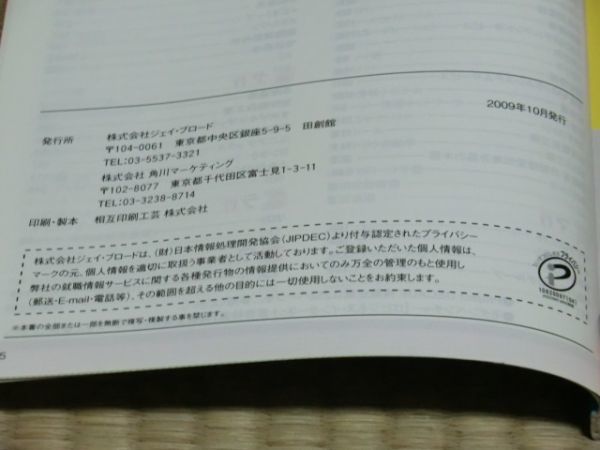 2009年10月発行
発行所　株式会社ジェイ・ブロード
〒104-0061　東京都中央区銀座5-9-5　田創館
TEL:03-5537-3321
株式会社 角川マーケティング
〒102-8077　東京都千代田区富士見1-3-11
TEL:03-3238-8714
印刷・製本　相互印刷工芸 株式会社
株式会社ジェイ・ブロードは、(財)日本情報処理開発協会(JIPDEC)より付与認定されたプライバシー
マークの元、個人情報を適切に取扱う事業者として活動しております。ご登録いただいた個人情報は、
弊社の就職情報サービスに関する各種発行物の情報提供においてのみ万全の管理のもと使用し
(郵送・E-mail・電話等)、その範囲を超える他の目的には一切使用しないことをお約束します。
※本書の全部または一部を無断で複写・複製する事を禁じます。
5